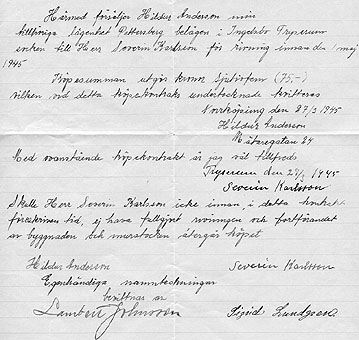 Härmed försäljer Hildur Anderson min
tillhöriga lägenhet Pettersberg belägen i Ingelsbo Tryserum
socken till Herr Severin Karlsson för rivning innan den 1 maj
1945
Köpesumman utgör kronor Sjutiofem (75,-)
vilken vid detta köpekontrakts undertecknade kvitteras
Norrköping den 27/3 1945
Hildur Anderson
24
Med ovanstående köpekontrakt är jag väl tillfreds
Tryserum den 29/3 1945
Severin Karlsson
Skulle Herr Severin Karlsson icke innan i detta kontrakt
föreskriven tid, ej hava fullgjort rivningen och bortförandet
av byggnaden och murstocken återgår köpet
Hildur Anderson Severin Karlsson
Egenhändiga namnteckningar
bevittnas av
Lambert Johnsson Sigrid Lundgren